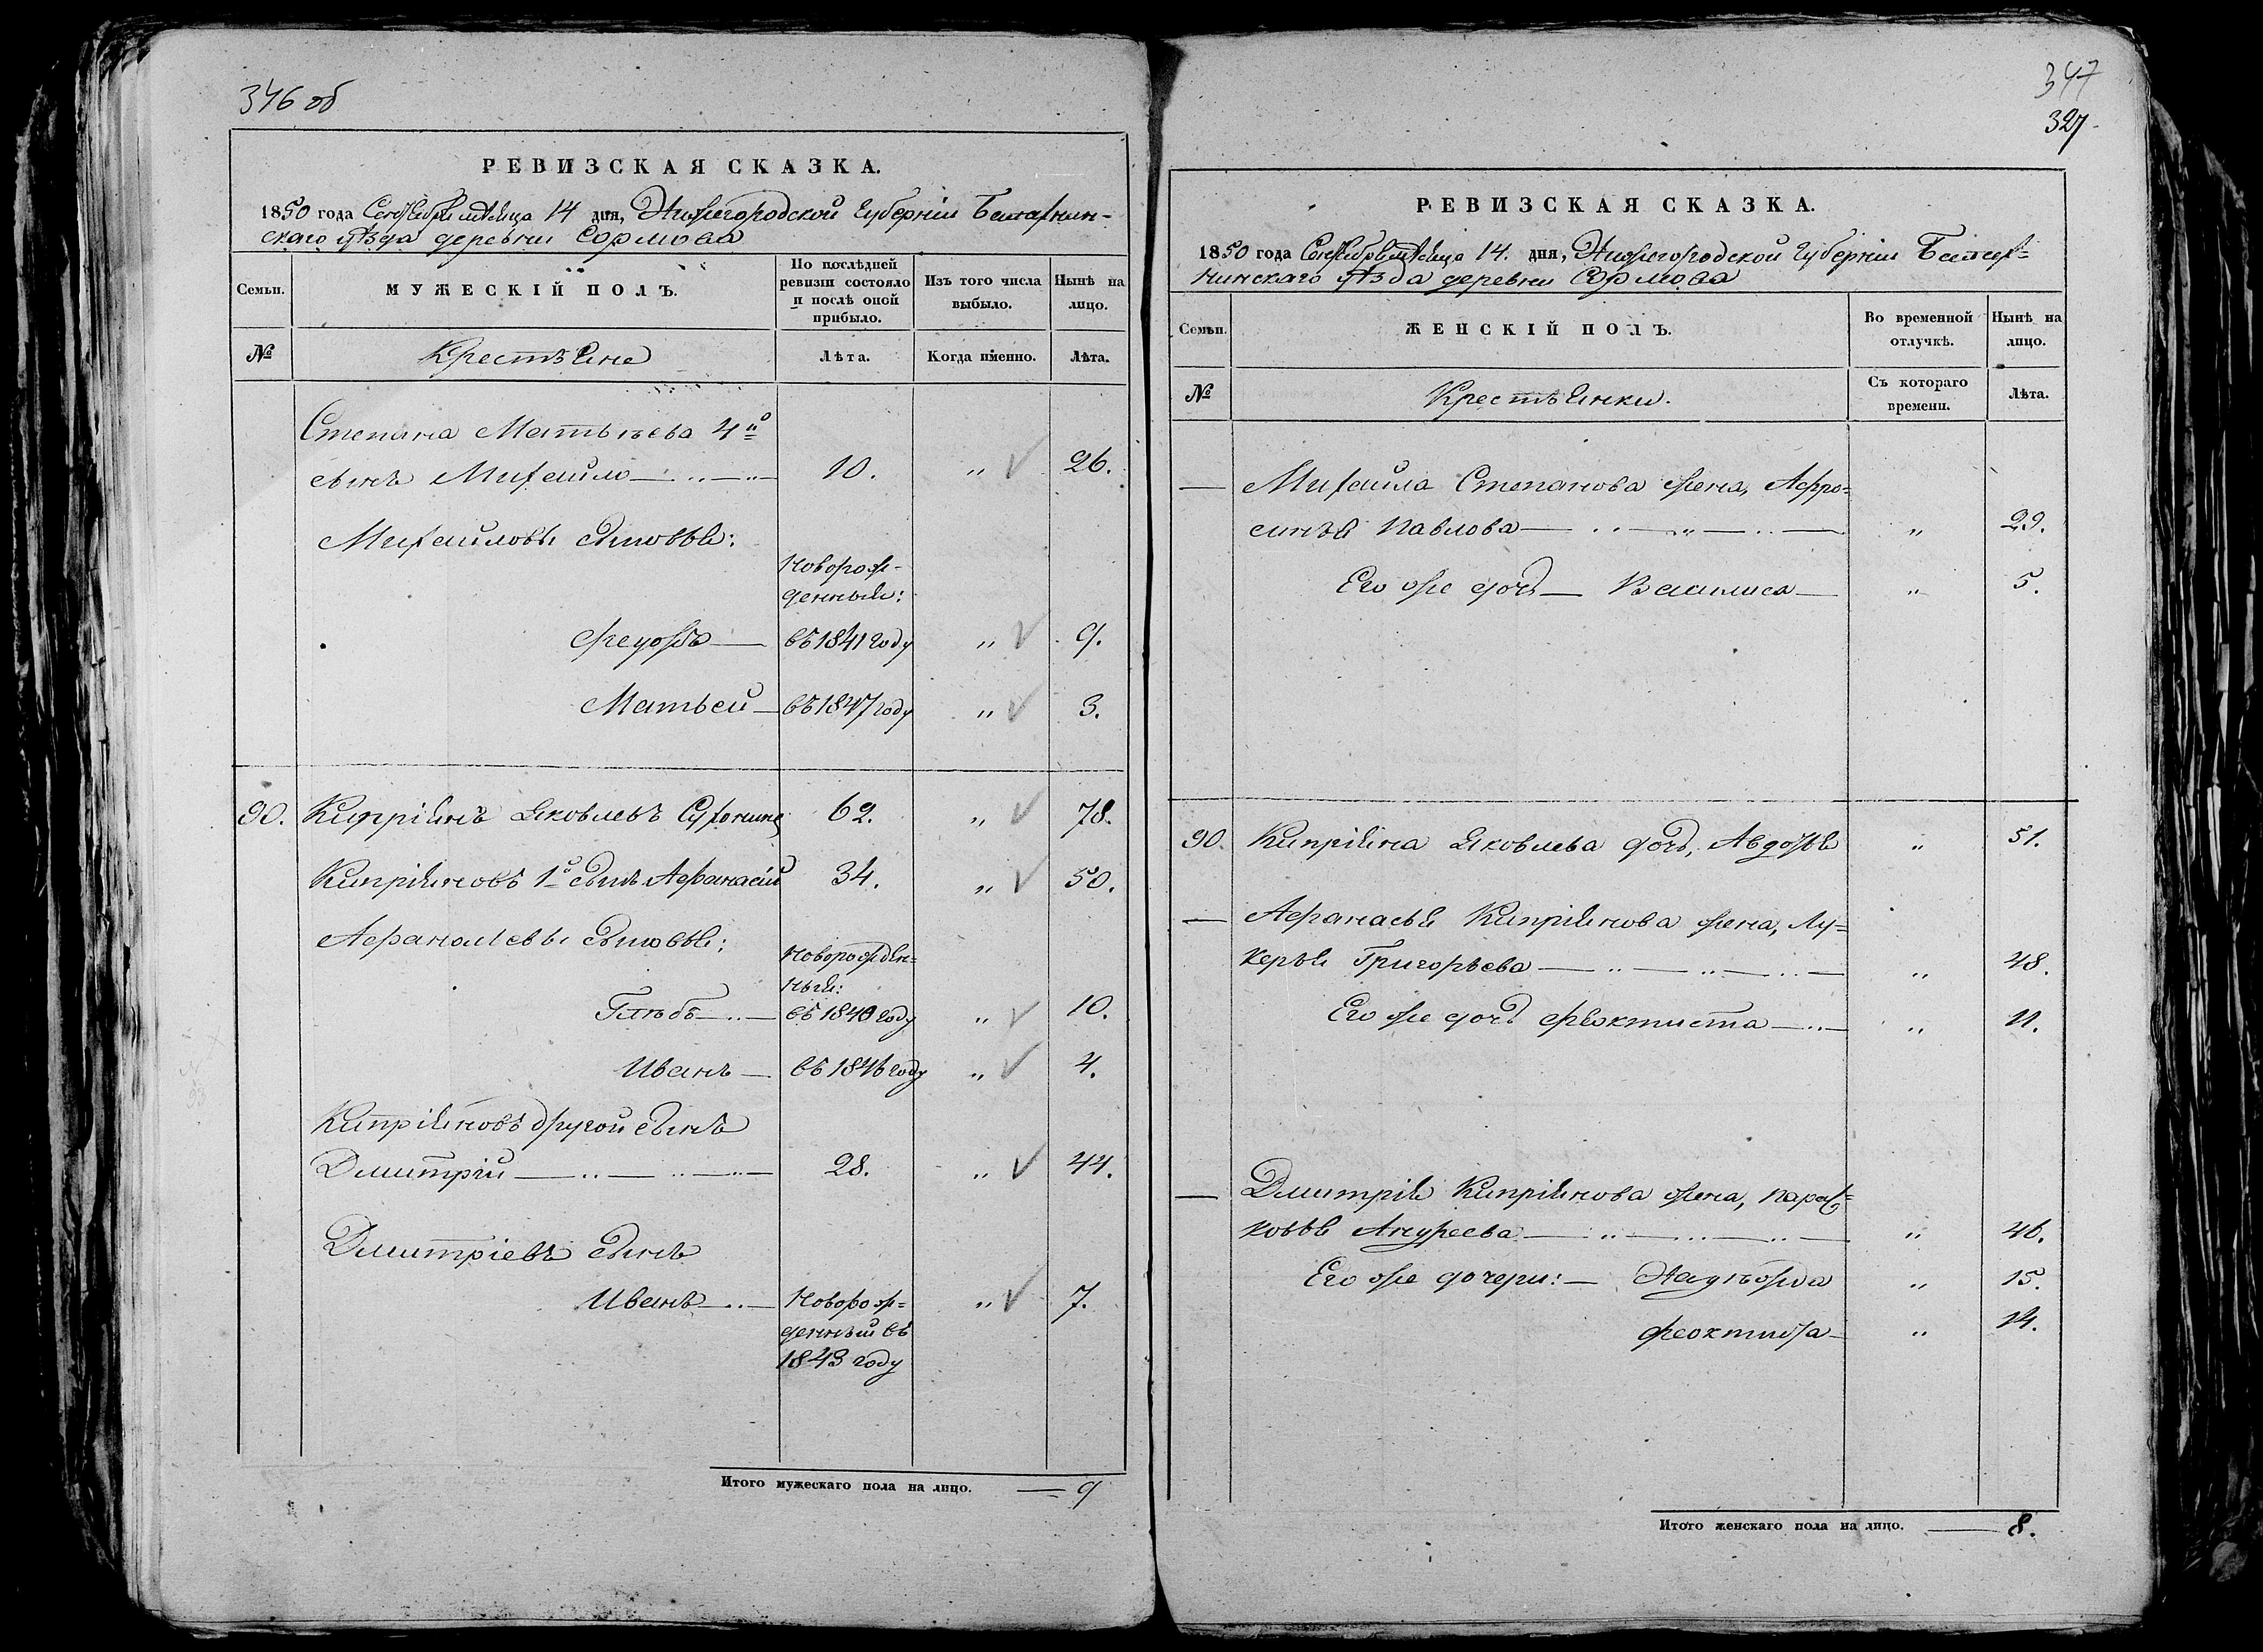 346 об
РЕВИЗСКАЯ СКАЗКА.
1850 года Сентября мѣсяца 14 дня, Нижегородской Губерніи Балахнин-
скаго уѣзда деревни Сормова
Семьи.
МУЖЕСКІЙ ПОЛЪ.
По послѣдней ревизіи состояло и послѣ оной прибыло.
Изъ того числа выбыло.
Нынѣ на лицо.
№
Крестьяне
Лѣта.
Когда именно.
Лѣта.
Степана Матвѣева 4й
сынъ Михайло 10. „ 26.
Михайловы сыновья:
Новорож-
денныя:
Федотъ въ 1841 году „ 9.
Матвей въ 1847 году „ 3.
90. Кипріянъ Яковлевъ 62. „ 78.
Кипріяновъ 1й сынъ Афанасій 34. „ 50.
Афанасьевы сыновья:
Новорожден-
ныя:
Глѣбъ въ 1840 году „ 10.
Иванъ въ 1846 году „ 4.
Кипріяновъ другой сынъ
Дмитрій 28. „ 44.
Дмитріевъ сынъ
Иванъ Новорож= „ 7.
денный въ
1843 году
Итого мужескаго пола на лицо. 9
347
327.
РЕВИЗСКАЯ СКАЗКА.
1850 года Сентября мѣсяца 14. дня, Нижегородской Губерніи Балах=
нинскаго уѣзда деревни Сормова
Семьи.
ЖЕНСКІЙ ПОЛЪ.
Во временной отлучкѣ.
Нынѣ на лицо.
№
Крестьянки.
Съ котораго времени.
Лѣта.
— Михайла Степанова жена, Афро=
синья Павлова „ 29.
Его же дочь Василиса „ 5.
90. Кипріяна Яковлева дочь, Авдотья „ 51.
— Афанасья Кипріянова жена, Лу=
керья Григорьева „ 48.
Его же дочь Феоктиста „ 11.
— Дмитрія Кипріянова жена, Парас=
ковья Андреева „ 46.
Его же дочери: Надѣжда „ 15.
Феоктиста „ 14.
Итого женскаго пола на лицо. 8.